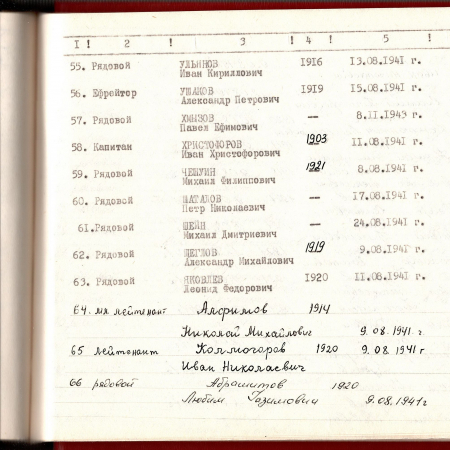 1 ! 2 ! 3 ! 4 ! 5 !
55. Рядовой УЛЬЯНОВ 1916 13.08.1941 г.
Иван Кириллович
56. Ефрейтор УШАКОВ 1919 15.08.1941 г.
Александр Петрович
57. Рядовой ХМЫЗОВ — 8.11.1943 г.
Павел Ефимович
58. Капитан ХРИСТОФОРОВ 1903 11.08.1941 г.
Иван Христофорович
59. Рядовой 1921 8.08.1941 г.
Михаил Филиппович
60. Рядовой ШАТАЛОВ — 17.08.1941 г.
Петр Николаевич
61. Рядовой ШЕЙН — 24.08.1941 г.
Михаил Дмитриевич
62. Рядовой ЩЕГЛОВ 1919 9.08.1941 г.
Александр Михайлович
63. Рядовой ЯКОВЛЕВ 1920 11.08.1941 г.
Леонид Федорович
64. мл лейтенант Алфимов 1914
Николай Михайлович 9.08.1941 г
65 лейтенант Колмогоров 1920 9.08.1941 г
Иван Николаевич
66 рядовой Абрашитов 1920
Любим 9.08.1941г